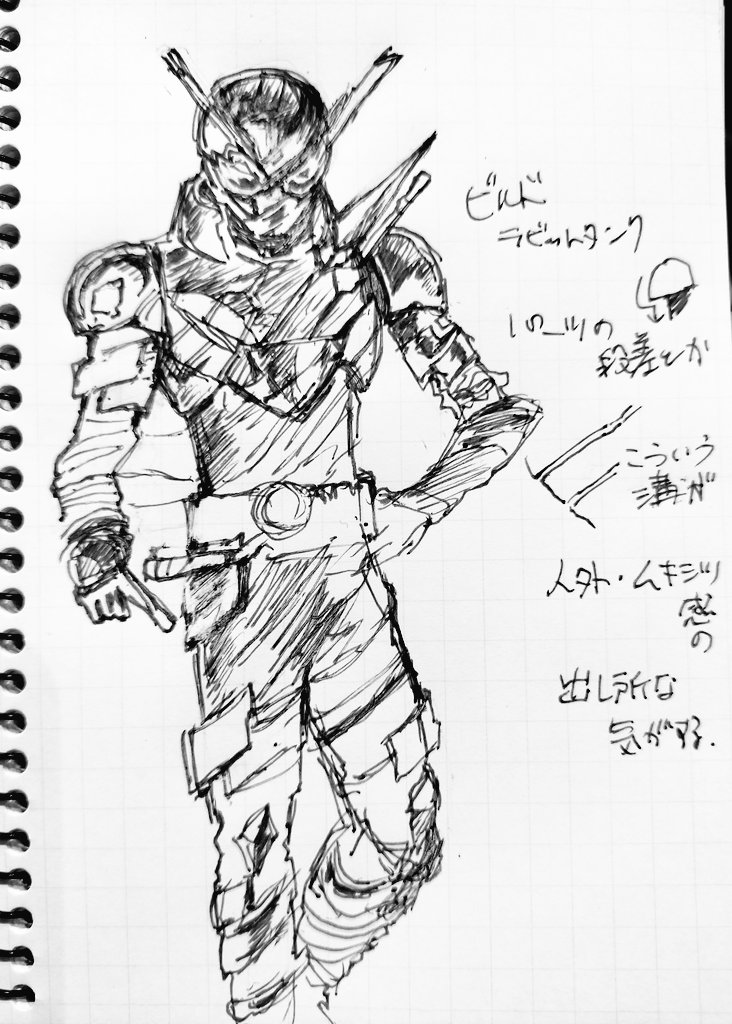 ビルド
ラビットタンク
パーツの
段差とか
こういう
溝が
人外・ムキシツ
感
の
出し所な
気がする.